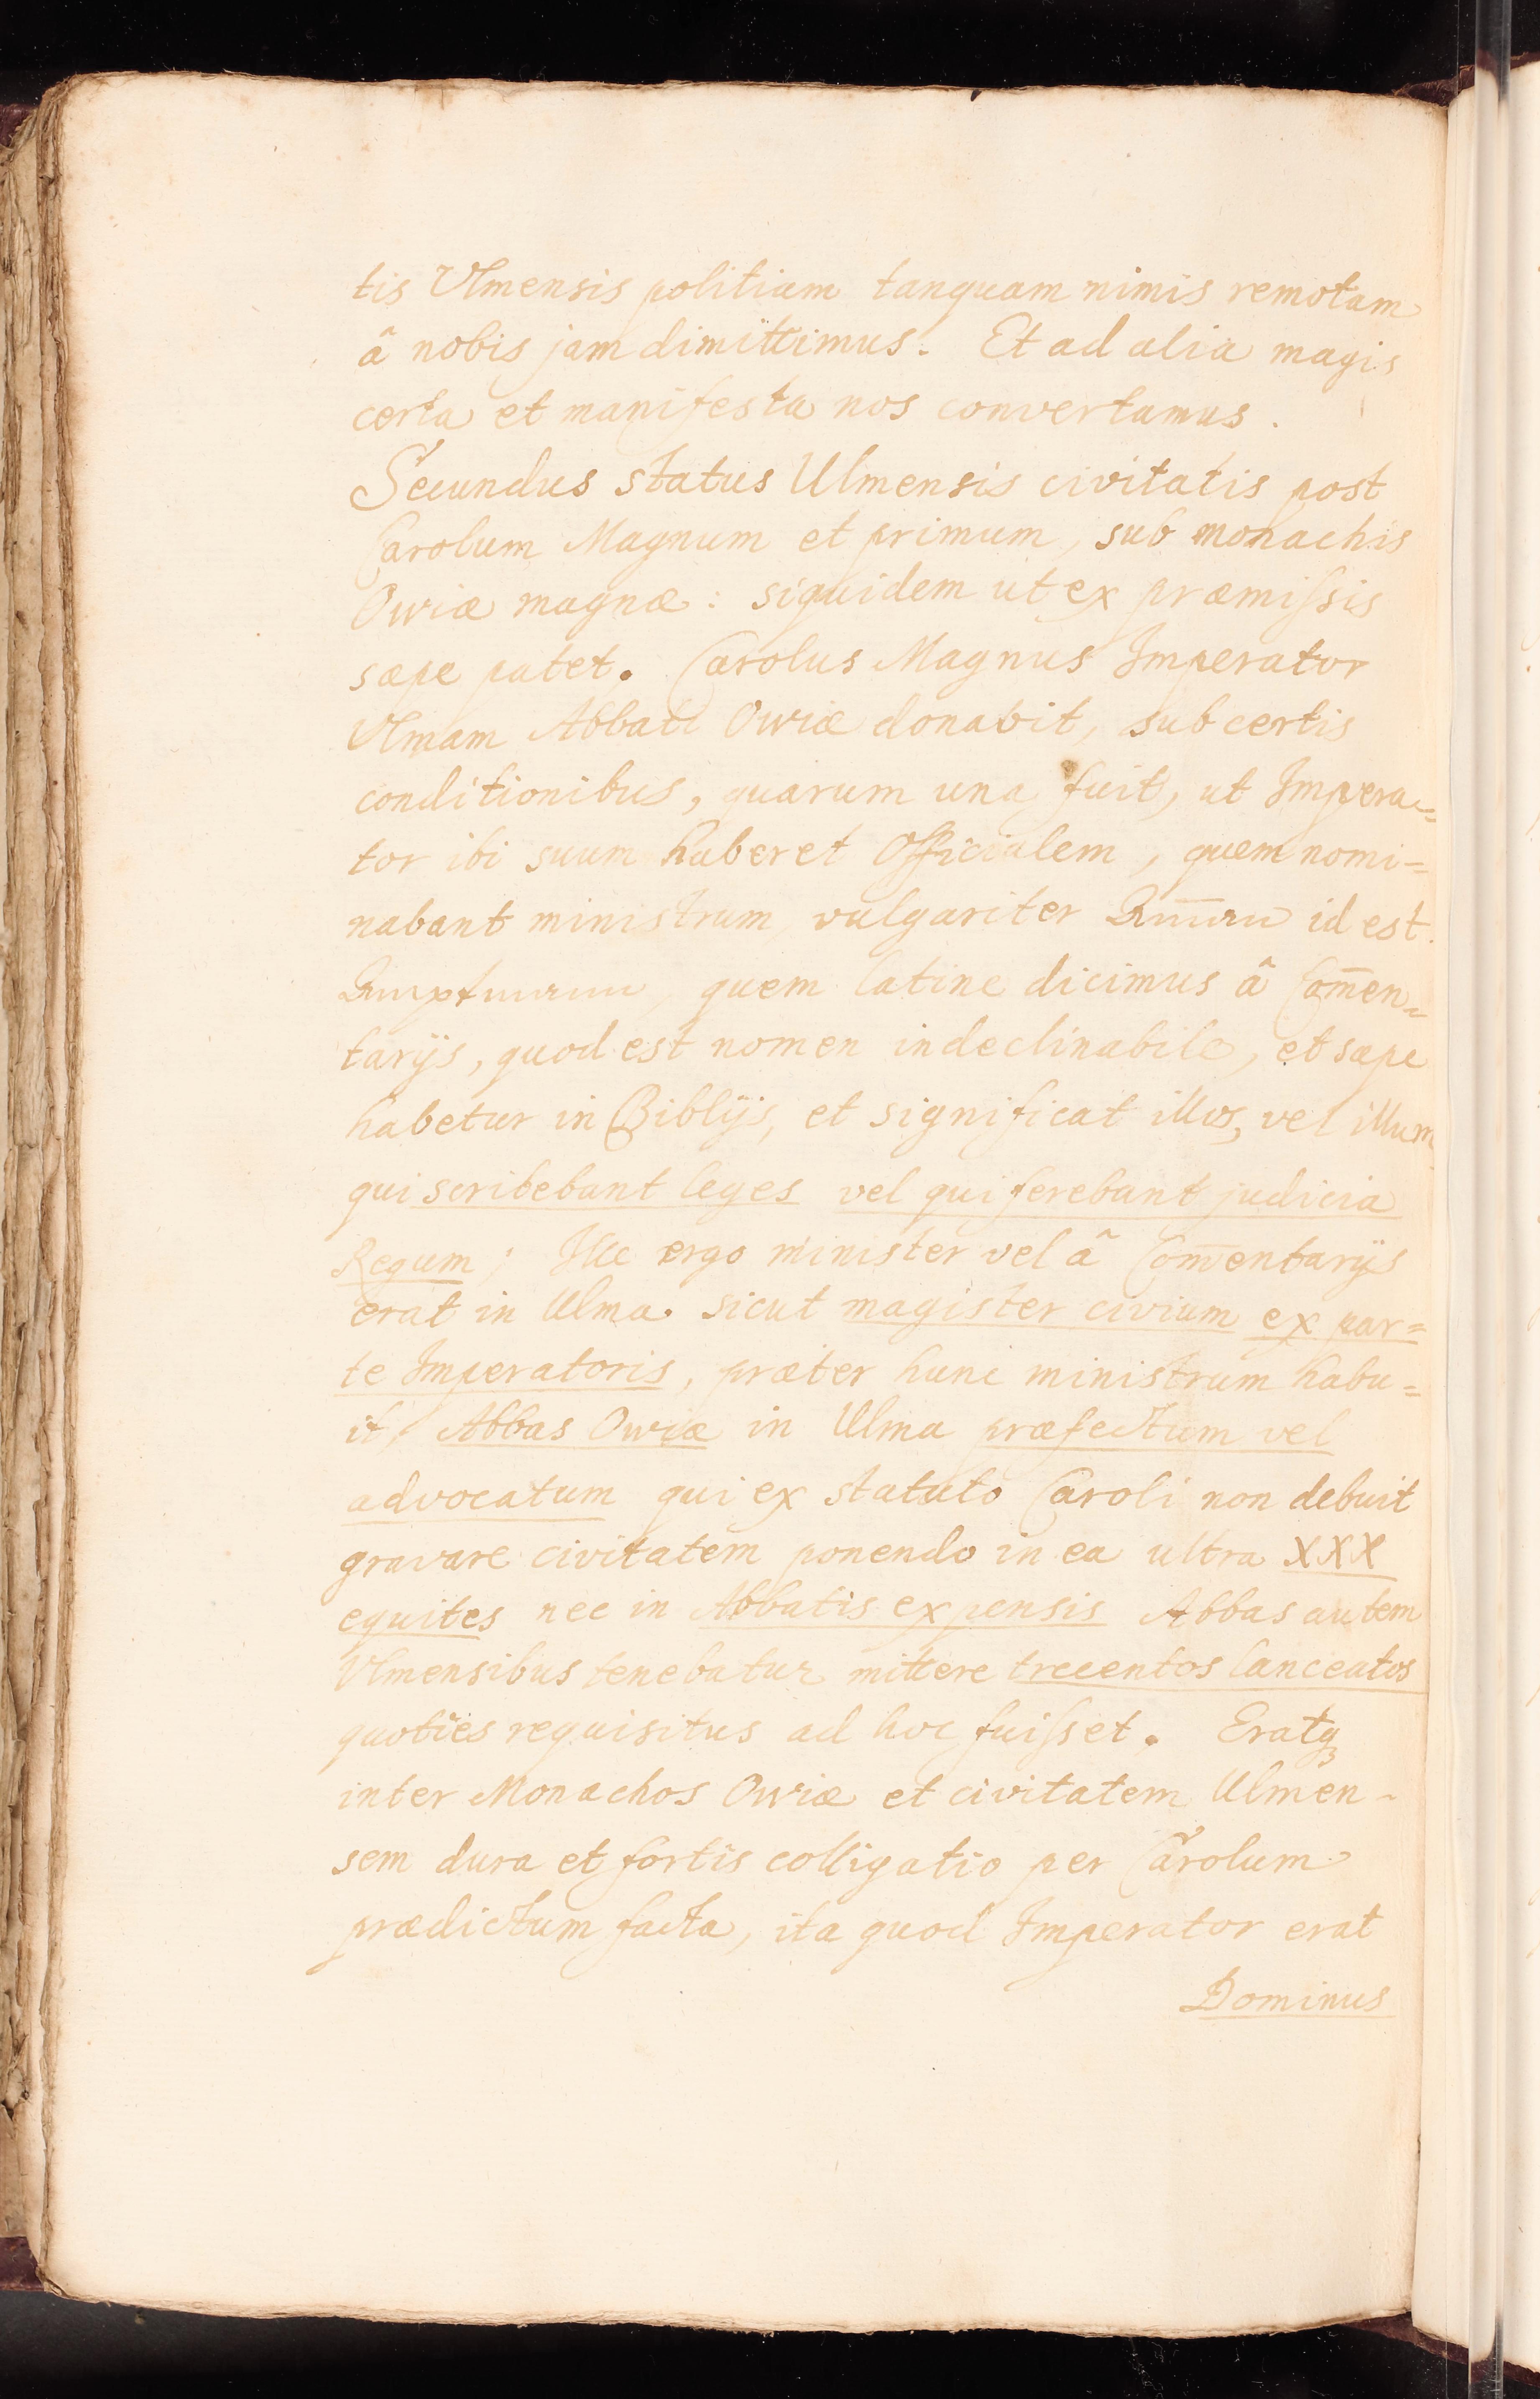 tis Vlmensis politiam tanquam nimis remotam
â nobis jam dimittimus. Et ad alia magis
certa et manifesta nos convertamus.
Secundus status Ulmensis civitatis post
Carolum Magnum et primum, sub monachis
Owiæ magnæ: siquidem ut ex præmiſsis
sæpe patet. Carolus Magnus Imperator
Vlmam Abbati Owiæ donavit, sub certis
conditionibus, quarum una fuit, ut Impera=
tor ibi suum haberet Officialem, quem nomi=
nabant ministrum vulgariter id est
quem latine dicimus â Com̄en=
tarijs, quod est nomen indeclinabile, et sæpe
habetur in Biblijs, et significat illos, vel illum
qui scribebant leges vel qui ferebant judicia
Regum; Ille ergo minister vel â Com̄entarijs
erat in Ulma sicut magister civium ex par=
te Imperatoris, præter hunc ministrum habu=
it, Abbas Owiæ in Ulma præfectum vel
advocatum qui ex statuto Caroli non debuit
gravare civitatem ponendo in ea ultra XXX
equites nec in Abbatis expensis Abbas autem
Vlmensibus tenebatur mittere trecentos lanceatos
quoties requisitus ad hoc fuiſset. Eratqꝫ
inter Monachos Owiæ et civitatem Ulmen-
sem dura et fortis colligatio per Carolum
prædictum facta, ita quod Imperator erat
Dominus